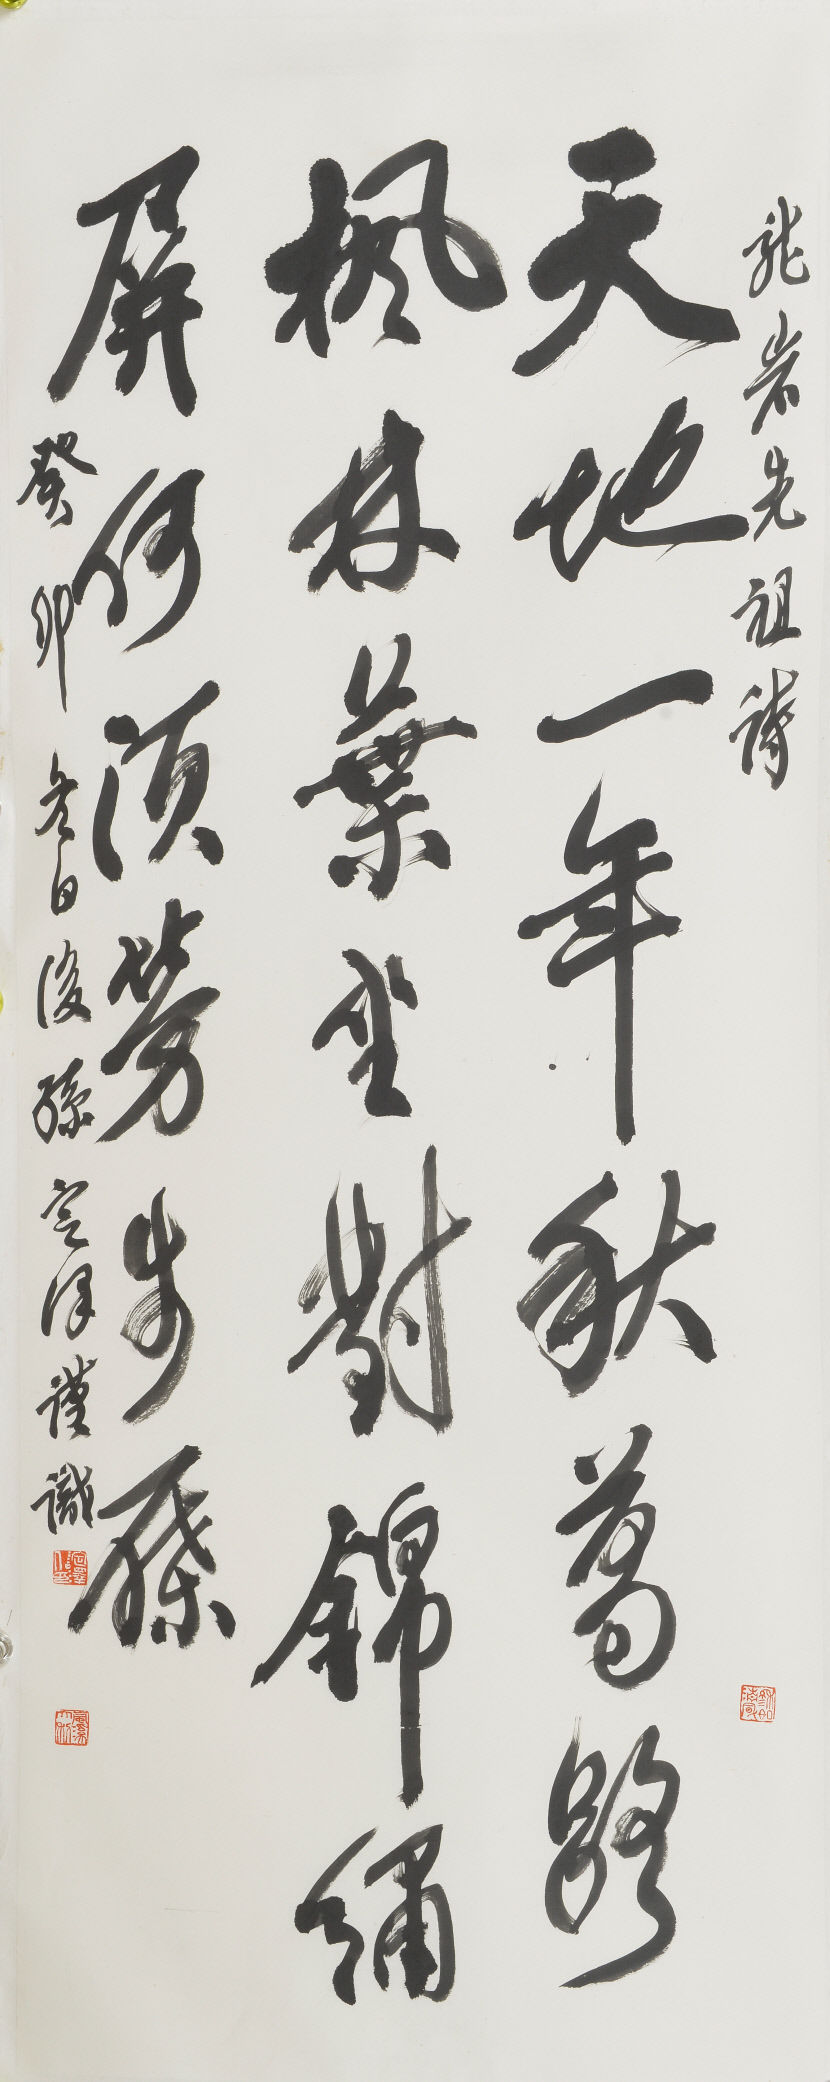 龍岩先祖詩
天地一年秋萬路
楓林葉坐對錦繡
屏何須勞步屧
癸卯冬日後孫定得謹識